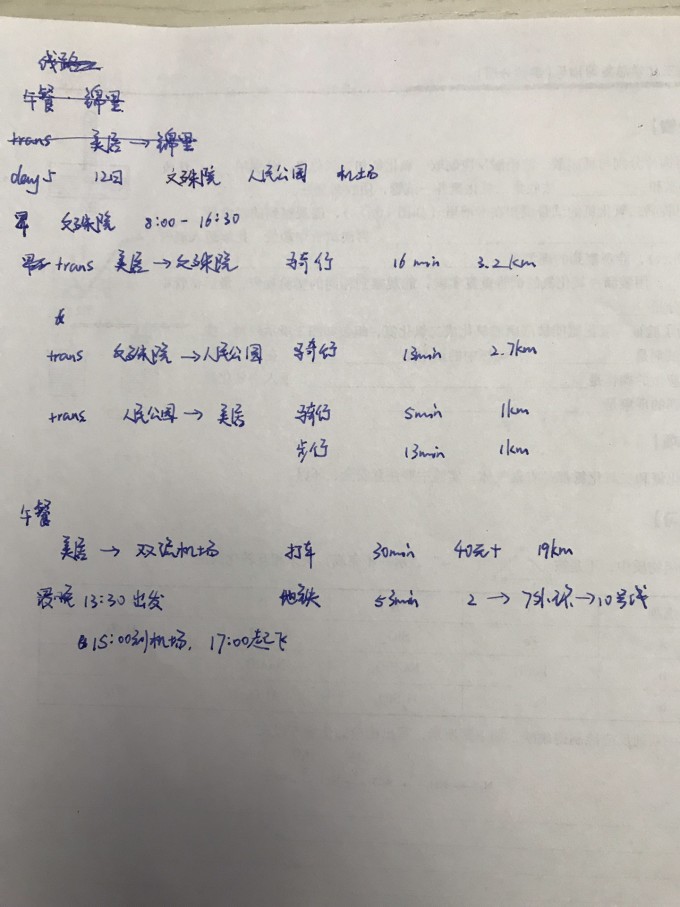 线路
午餐 锦里
trans 美居→锦里
day5 12日 文殊院 人民公园 机场
文殊院 8:00-16:30
trans 美居→文殊院 骑行 16min 3.2km
trans 文殊院→人民公园 骑行 13min 2.7km
trans 人民公园→美居 骑行 5min 1km
步行 13min 1km
午餐
美居→双流机场 打车 30min 40元+ 19km
最晚13:30出发 地铁 53min 2→7外环→10号线
15:00到机场, 17:00起飞